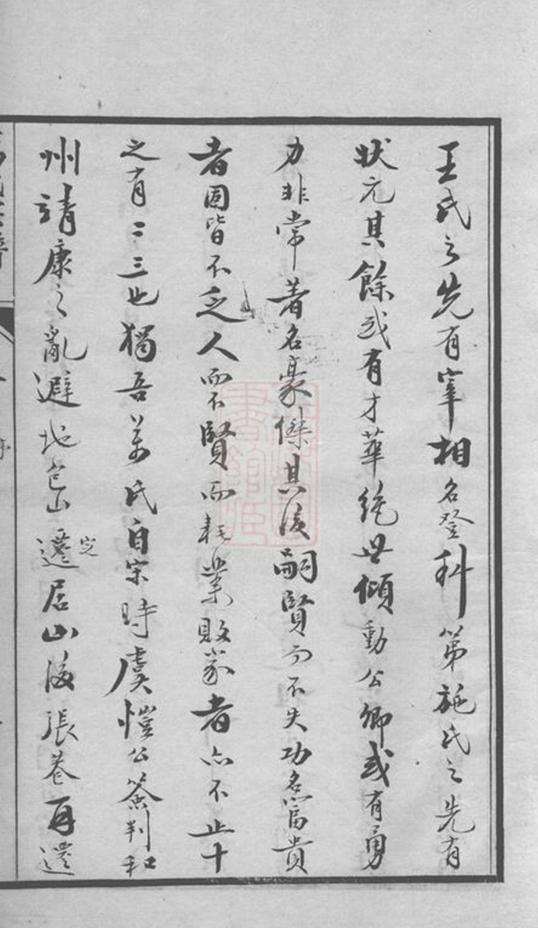 王氏之先有宰相名登科第施氏之先有
狀元其餘或有才華絕世傾動公卿或有勇
力非常著名豪傑其後嗣賢而不失功名富貴
者固皆不乏人而不賢而耗業敗家者亦不止十
之有二三也獨吾萬氏自宋時虞愷公簽判和
州靖康之亂避地包山遷居山後張巷再遷
定